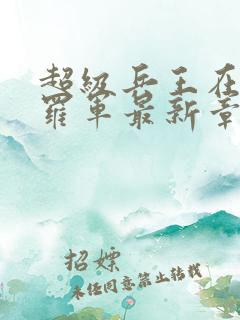 超级兵王在
罗军最新章
招嫖
未经同意禁止转载